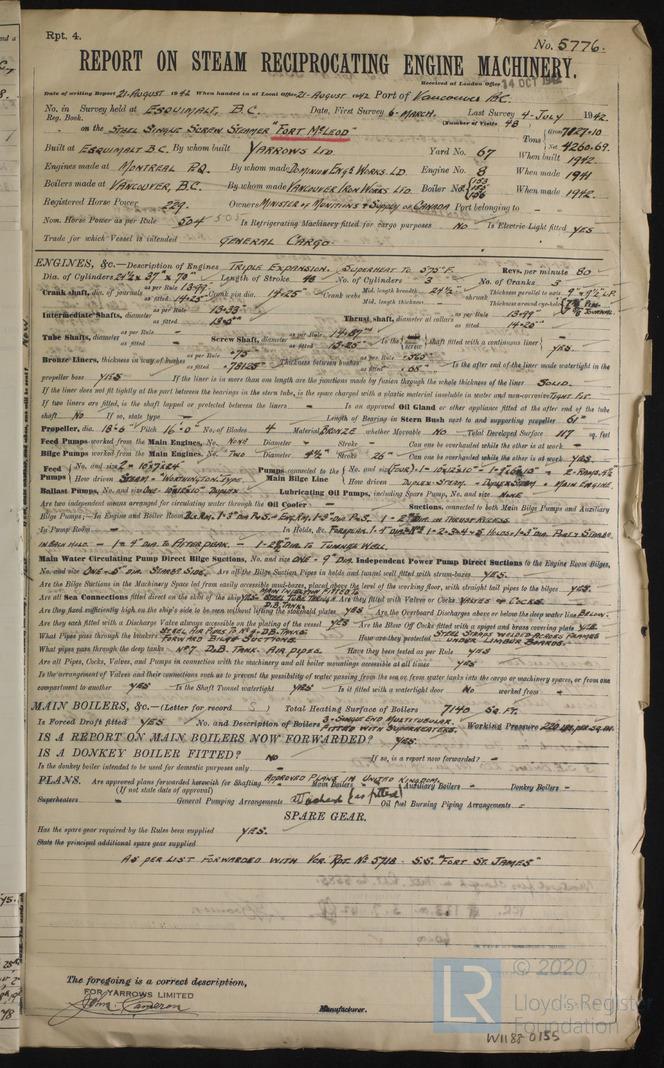 Rpt. 4.
No. 5776.
REPORT ON STEAM RECIPROCATING ENGINE MACHINERY.
Received at London Office 14 OCT 1942
Date of writing Report 21-AUGUST 1942 When handed in at Local Office 21-AUGUST 1942 Port of VANCOUVER B.C.
No. in Reg. Book. Survey held at ESQUIMALT, B.C. Date, First Survey 6-MARCH. Last Survey 4-JULY 1942
(Number of Visits 48
on the STEEL SINGLE SCREW STEAMER "FORT McLEOD" Tons Gross 7127.10 Net 4260.69.
Built at ESQUIMALT B.C. By whom built YARROWS LTD. Yard No. 67 When built 1942
Engines made at MONTREAL P.Q. By whom made DOMINION ENG'S WORKS. LD Engine No. 8 When made 1941
Boilers made at VANCOUVER, B.C. By whom made VANCOUVER IRON WORKS LTD. Boiler No. 153 155 156 When made 1942.
Registered Horse Power 229. Owners MINISTER OF MUNITIONS & SUPPLY OF CANADA Port belonging to -
Nom. Horse Power as per Rule 504 Is Refrigerating Machinery fitted for cargo purposes NO Is Electric Light fitted YES
Trade for which Vessel is intended GENERAL CARGO.
ENGINES, &c.—Description of Engines TRIPLE EXPANSION. SUPERHEAT TO 575°F. Revs. per minute 80
Dia. of Cylinders 24½ x 37" x 70" Length of Stroke 48 No. of Cylinders 3 No. of Cranks 3
Crank shaft, dia. of journals as per Rule 13.99" as fitted 14.25" Crank pin dia. 14.25" Crank webs Mid. length breadth 24½" Mid. length thickness shrunk Thickness parallel to axis 9" & 9½" L.P. Thickness around eye-hole
Intermediate Shafts, diameter as per Rule 13.33" as fitted 13.5" Thrust shaft, diameter at collars as per Rule 13.99" as fitted 14.25"
Tube Shafts, diameter as per Rule as fitted Screw Shaft, diameter as per Rule as fitted shaft fitted with a continuous liner YES
Bronze Liners, thickness in way of bushes as per Rule .75" as fitted .78125 Thickness between bushes as per Rule .565 as fitted Is the after end of the liner made watertight in the
propeller boss YES If the liner is in more than one length are the junctions made by fusion through the whole thickness of the liner SOLID.
If the liner does not fit tightly at the part between the bearings in the stern tube, is the space charged with a plastic material insoluble in water and non-corrosive TIGHT FIT.
If two liners are fitted, is the shaft lapped or protected between the liners - Is an approved Oil Gland or other appliance fitted at the after end of the tube
shaft NO If so, state type - Length of Bearing in Stern Bush next to and supporting propeller 61"
Propeller, dia. 18'-6 Pitch 16'-0" No. of Blades 4 Material BRONZE whether Moveable NO Total Developed Surface 117 sq. feet
Feed Pumps worked from the Main Engines, No. NONE Diameter - Stroke - Can one be overhauled while the other is at work -
Bilge Pumps worked from the Main Engines, No. TWO Diameter 4½" Stroke 26" Can one be overhauled while the other is at work YES.
Feed Pumps No. and size 2 - 10"x7"x24" How driven STEAM - WORTHINGTON TYPE. Pumps connected to the Main Bilge Line No. and size (FOUR) How driven DUPLEX-STEAM - DUPLEX STEAM - MAIN ENGINE
Ballast Pumps, No. and size DUPLEX Lubricating Oil Pumps, including Spare Pump, No. and size NONE
Are two independent means arranged for circulating water through the Oil Cooler - Suctions, connected to both Main Bilge Pumps and Auxiliary
Bilge Pumps;—In Engine and Boiler Room
In Pump Room - In Holds, &c.
1 - 4" DIA. TO AFTER PEAK. DIA. TO TUNNEL WELL.
Main Water Circulating Pump Direct Bilge Suctions, No. and size ONE - 9" DIA. Independent Power Pump Direct Suctions to the Engine Room Bilges,
No. and size ONE - 5" DIA. STARB'D SIDE. Are all the Bilge Suction Pipes in holds and tunnel well fitted with strum-boxes YES.
Are the Bilge Suctions in the Machinery Space led from easily accessible mud-boxes, placed above the level of the working floor, with straight tail pipes to the bilges YES.
Are all Sea Connections fitted direct on the skin of the ship YES MAIN INJECTION FITTED TO STEEL TUBE THROUGH D.B. TANK. Are they fitted with Valves or Cocks VALVES & COCKS.
Are they fixed sufficiently high on the ship's side to be seen without lifting the stokehold plates YES Are the Overboard Discharges above or below the deep water line BELOW.
Are they each fitted with a Discharge Valve always accessible on the plating of the vessel YES Are the Blow Off Cocks fitted with a spigot and brass covering plate YES.
What Pipes pass through the bunkers STEEL AIR PIPES TO D.B. TANKS. FORWARD BILGE SUCTIONS. How are they protected STEEL STRAPS WELDED ACROSS FRAMES UNDER LIMBER BOARDS.
What pipes pass through the deep tanks Nº7 D.B. TANK AIR PIPES. Have they been tested as per Rule YES
Are all Pipes, Cocks, Valves, and Pumps in connection with the machinery and all boiler mountings accessible at all times YES
Is the arrangement of Valves and their connections such as to prevent the possibility of water passing from the sea or from water tanks into the cargo or machinery spaces, or from one
compartment to another YES Is the Shaft Tunnel watertight YES Is it fitted with a watertight door NO worked from -
MAIN BOILERS, &c.—(Letter for record S ) Total Heating Surface of Boilers 7140 SQ. FT.
Is Forced Draft fitted YES No. and Description of Boilers 3 - SINGLE END MULTITUBULAR. FITTED WITH SUPERHEATERS. Working Pressure 220 LBS. PER SQ. IN.
IS A REPORT ON MAIN BOILERS NOW FORWARDED? YES.
IS A DONKEY BOILER FITTED? NO If so, is a report now forwarded? -
Is the donkey boiler intended to be used for domestic purposes only -
PLANS. Are approved plans forwarded herewith for Shafting APPROVED PLANS IN UNITED KINGDOM. Main Boilers Auxiliary Boilers - Donkey Boilers -
(If not state date of approval)
Superheaters - General Pumping Arrangements attached (as fitted) Oil fuel Burning Piping Arrangements -
SPARE GEAR.
Has the spare gear required by the Rules been supplied YES.
State the principal additional spare gear supplied
AS PER LIST FORWARDED WITH VCR. RPT. Nº 5718 - S.S. "FORT ST. JAMES"
The foregoing is a correct description,
FOR YARROWS LIMITED
John Cameron
Manufacturer.
© 2020
LR
Lloyd's Register
Foundation
W1188-0155